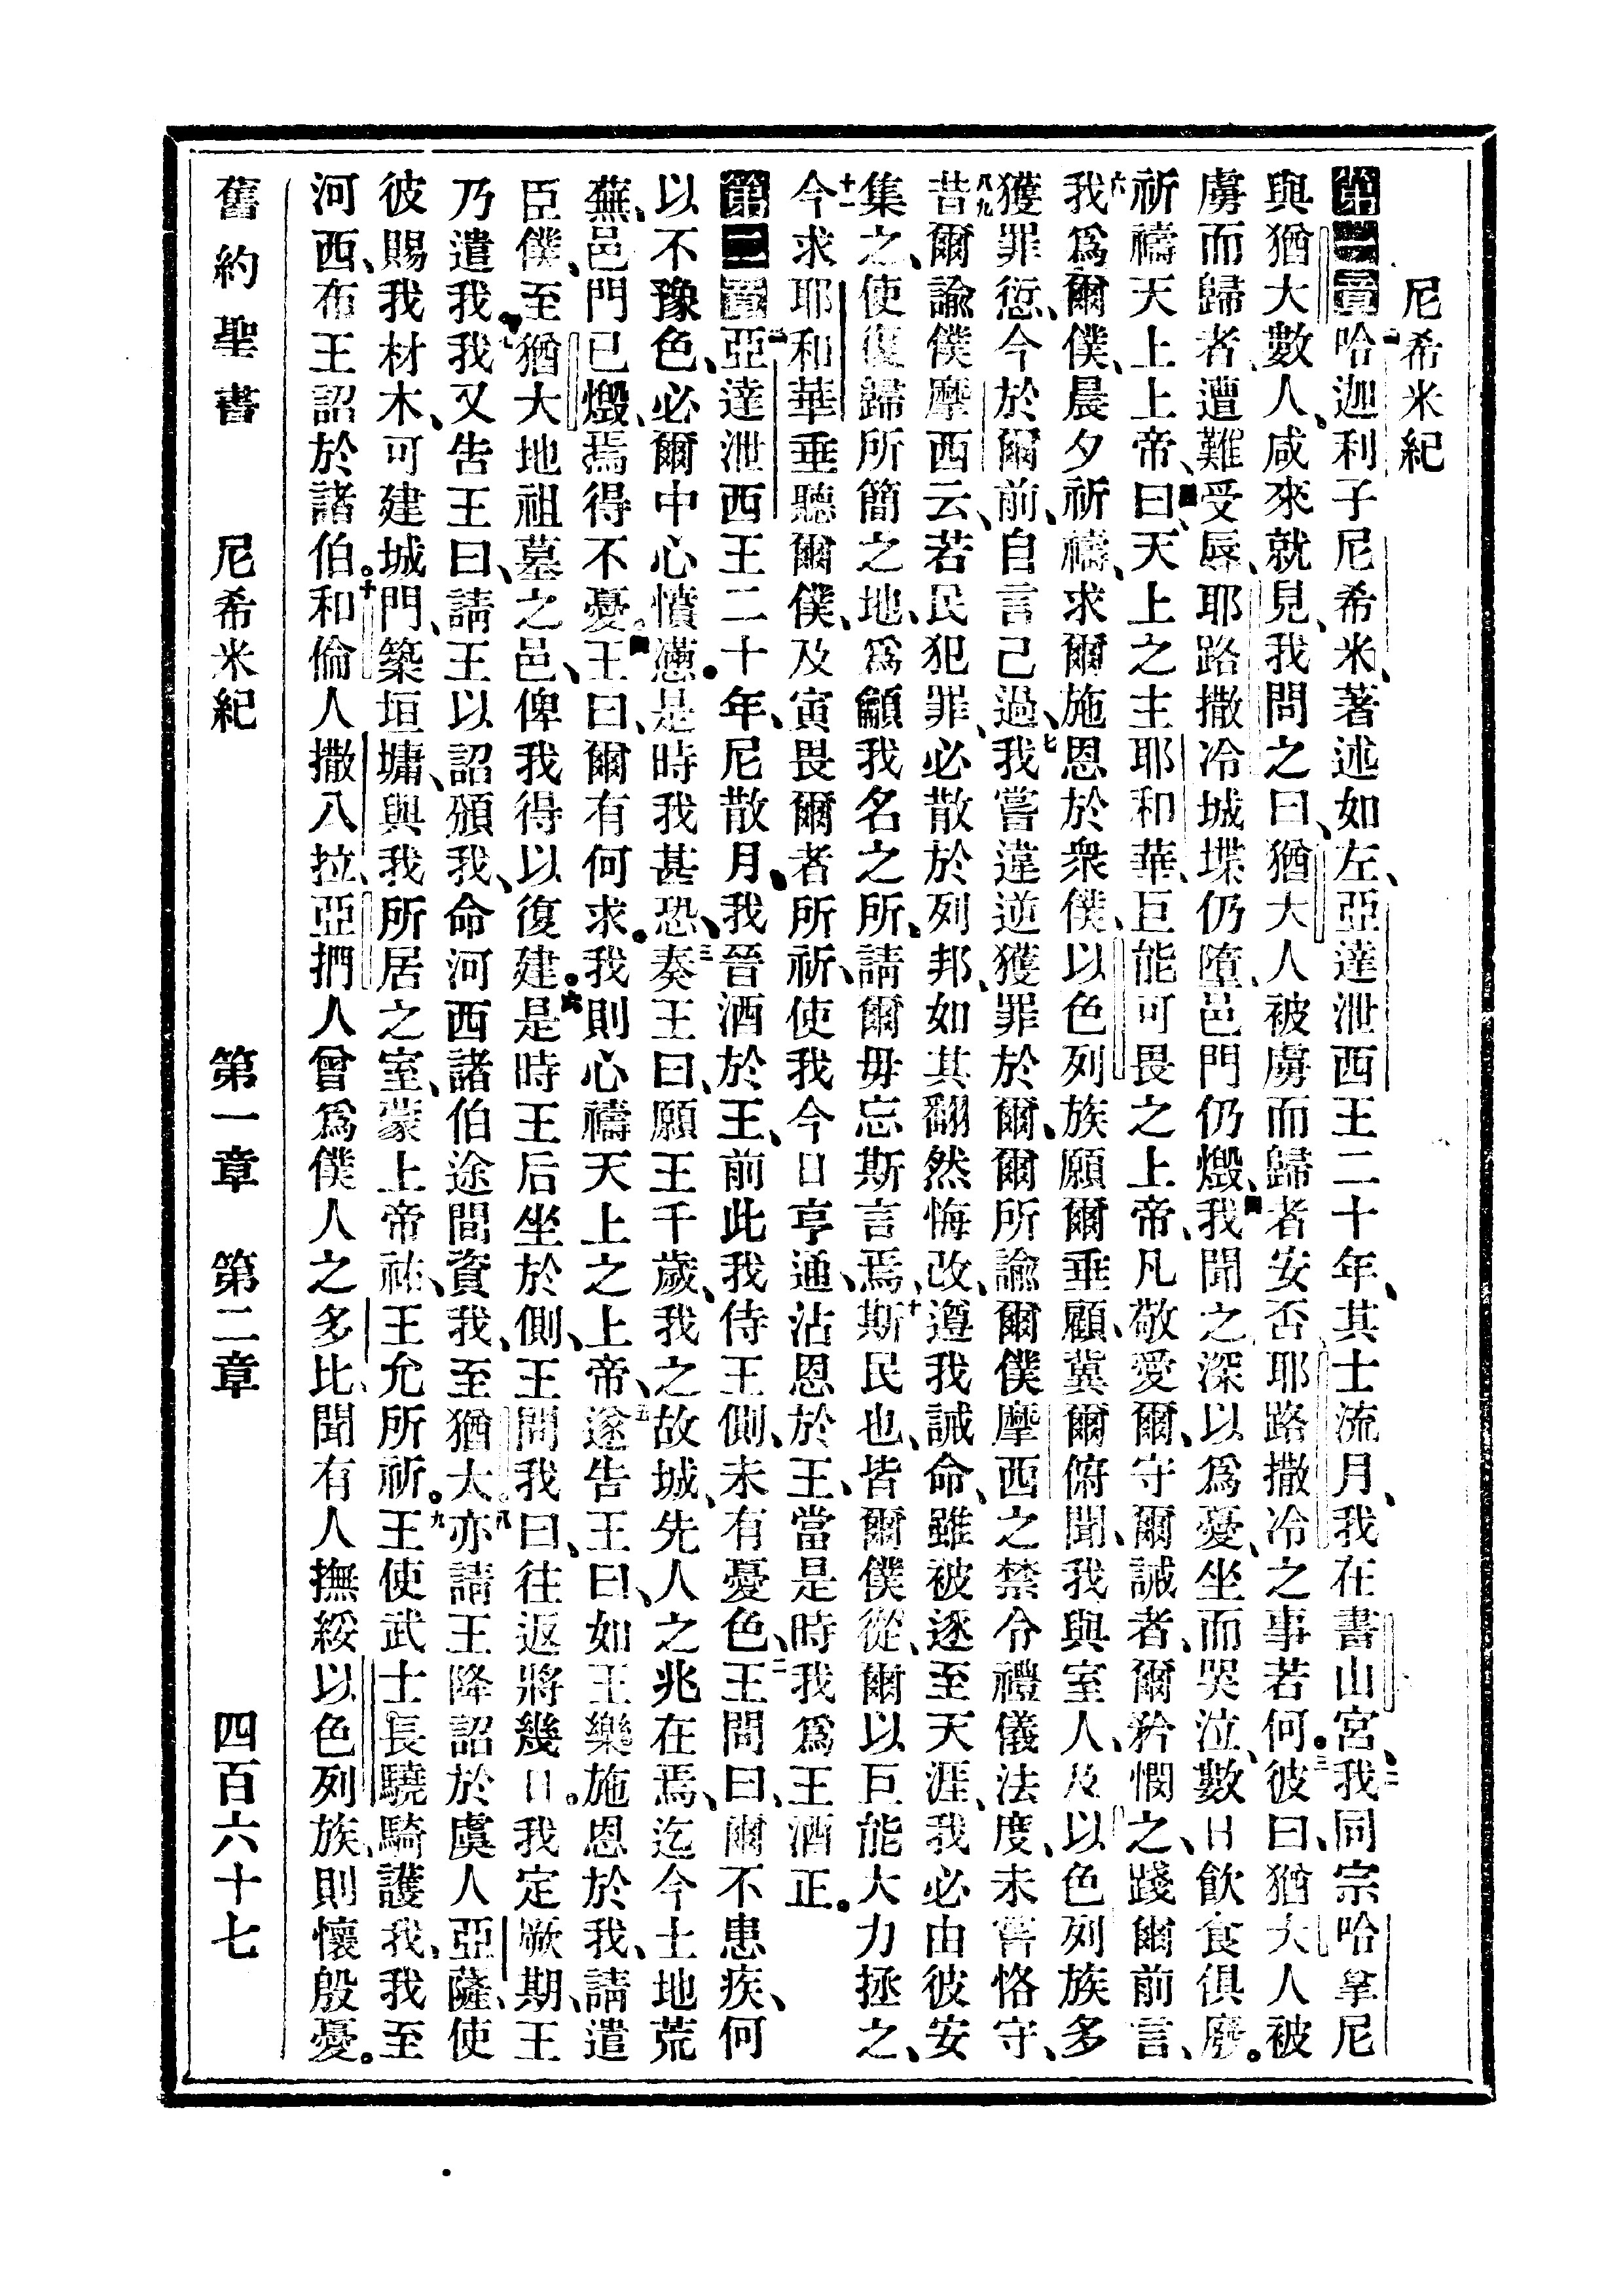 尼希米紀
第一章哈迦利子尼希米、著述如左、亞達泄西王二十年、其士流月、我在書山宮、二我同宗哈拿尼
與猶大數人、咸來就見、我問之曰、猶大人被虜而歸者安否、耶路撒冷之事若何。三彼曰、猶大人被
虜而歸者、遭難受辱、耶路撒冷城堞仍墮、邑門仍燬、四我聞之深以爲憂、坐而哭泣、數日飲食俱廢。
祈禱天上上帝、五曰、天上之主耶和華、巨能可畏之上帝、凡敬愛爾、守爾誡者、爾矜憫之、踐爾前言、
六我爲爾僕、晨夕祈禱、求爾施恩於衆僕、以色列族、願爾垂顧、冀爾俯聞、我與室人、及以色列族多
獲罪愆、今於爾前、自言己過、七我嘗違逆獲罪於爾、爾所諭爾僕摩西之禁令禮儀法度、未嘗恪守、
八九昔爾諭僕摩西云、若民犯罪、必散於列邦、如其翻然悔改、遵我誡命、雖被逐至天涯、我必由彼安
集之、使復歸所簡之地、爲籲我名之所、請爾毋忘斯言焉、十斯民也、皆爾僕從、爾以巨能大力拯之、
十一今求耶和華垂聽爾僕、及寅畏爾者所祈、使我今日亨通、沾恩於王、當是時我爲王酒正。
第二章一亞達泄西王二十年、尼散月、我晉酒於王、前此我侍王側、未有憂色、二王問曰、爾不患疾、何
以不豫色、必爾中心憤懣。是時我甚恐、三奏王曰、願王千歲、我之故城、先人之兆在焉、迄今土地荒
蕪、邑門已燬、焉得不憂。四王曰、爾有何求。我則心禱天上之上帝、五遂告王曰、如王樂施恩於我、請遣
臣僕、至猶大地祖墓之邑、俾我得以復建。六是時王后坐於側、王問我曰、往返將幾日。我定厥期、王
乃遣我、七我又告王曰、請王以詔頒我、命河西諸伯途間資我、至猶大、八亦請王降詔於虞人亞薩、使
彼賜我材木、可建城門、築垣墉、與我所居之室、蒙上帝祐、王允所祈。九王使武士長驍騎護我、我至
河西、布王詔於諸伯。十和倫人撒八拉、亞捫人曾爲僕人之多比、聞有人撫綏以色列族、則懷殷憂。
舊約聖書 尼希米紀 第一章 第二章 四百六十七